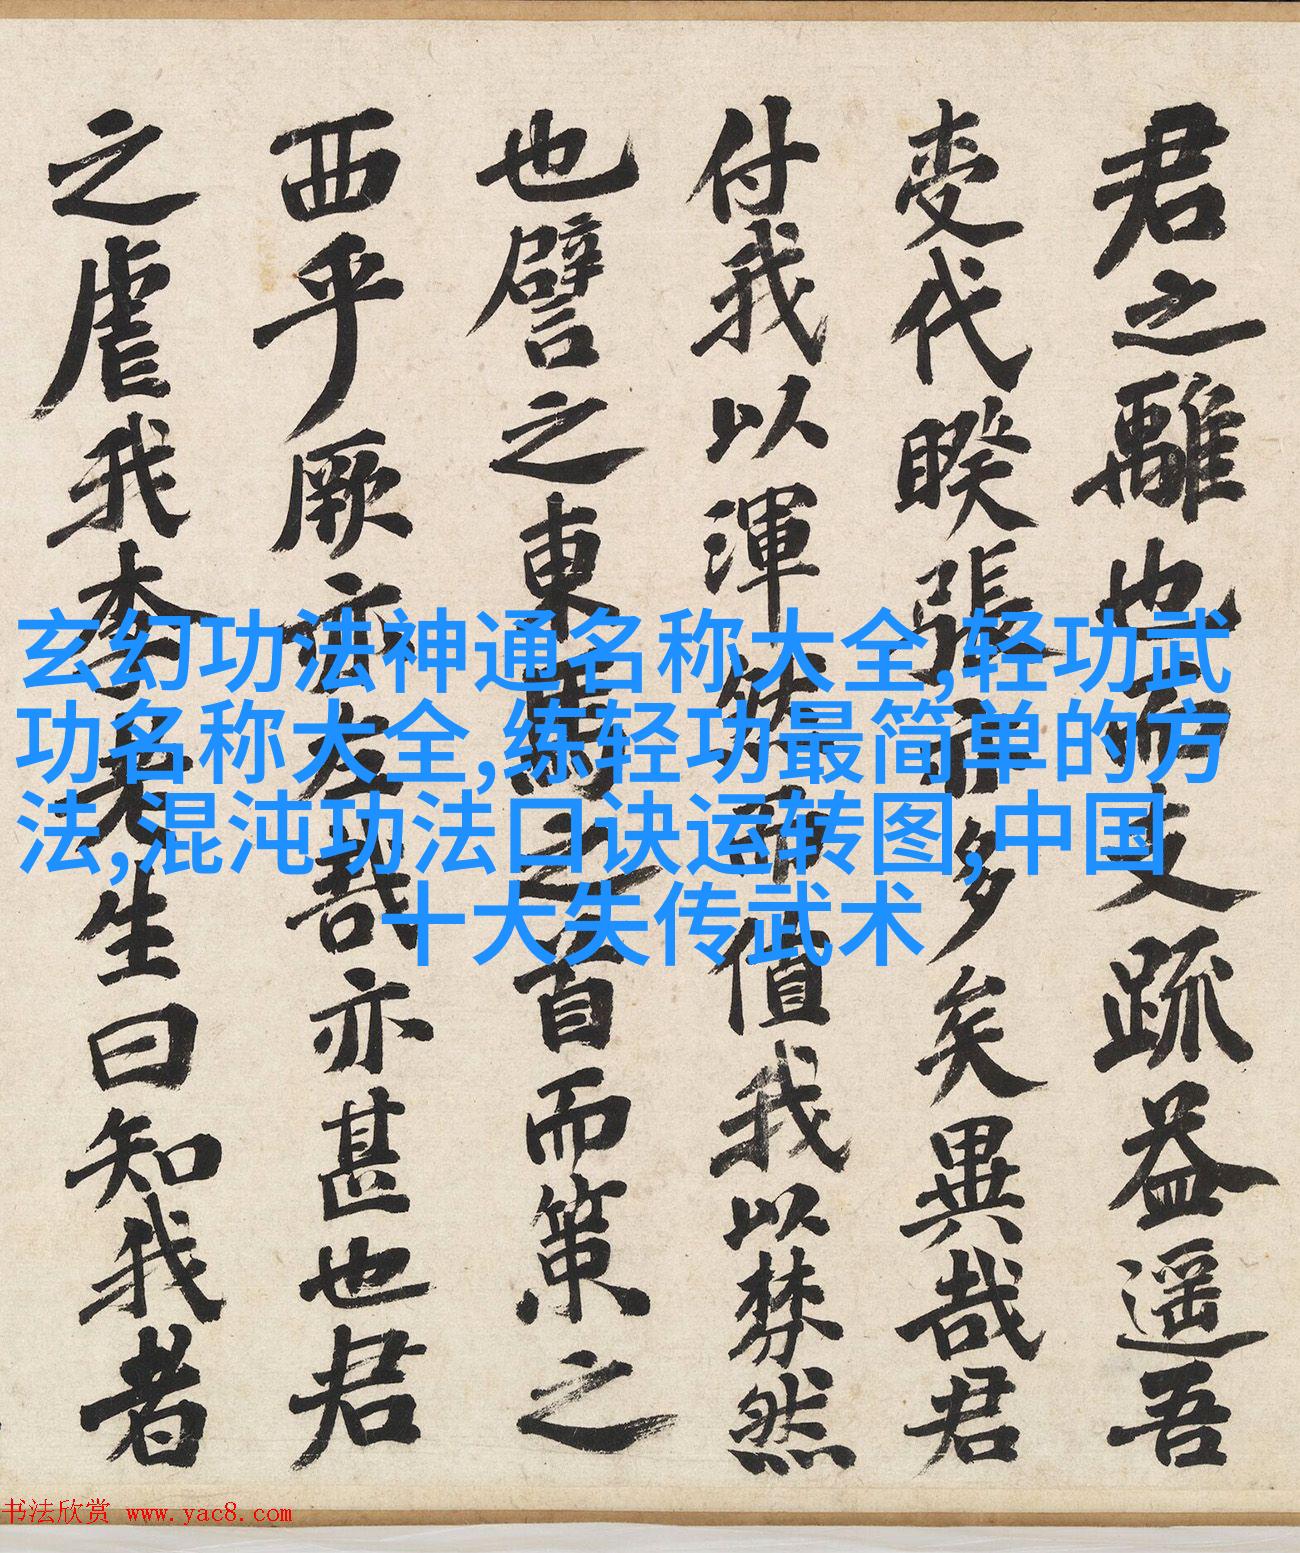 君之離也而支疏益遥吾
代暌張而多矣異哉君
付我以渾而值我以棼然
也譬之東馬之首而策之
西乎厥亦左哉亦甚也君
之虐我老生曰知我者
玄幻功法神通名称大全,轻功武
功名称大全,练轻功最简单的方
法,混沌功法口诀运转图,中国
十大失传武术
书法欣赏 www.yac8.com